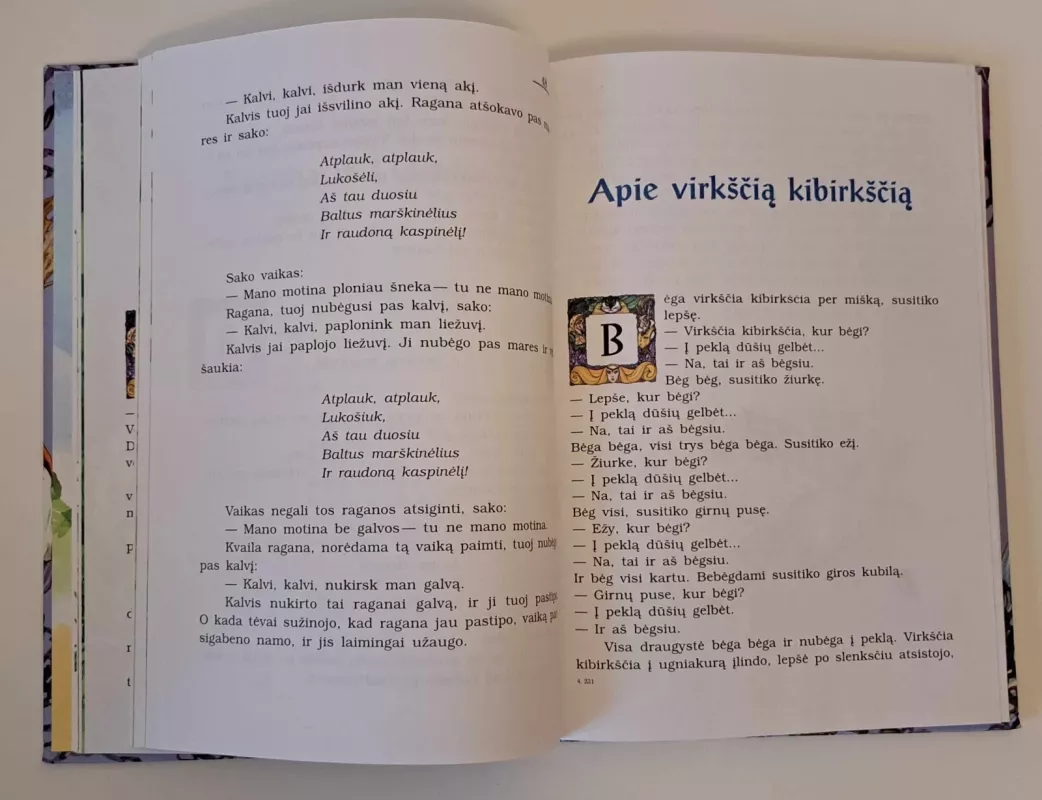 — Kalvi, kalvi, išdurk man vieną akį.
Kalvis tuoj jai išsvilino akį. Ragana atšokavo pas
res ir sako:
Atplauk, atplauk,
Lukošėli,
Aš tau duosiu
Baltus marškinėlius
Ir raudoną kaspinėlį!
Sako vaikas:
— Mano motina ploniau šneka — tu ne mano motina
Ragana, tuoj nubėgusi pas kalvį, sako:
— Kalvi, kalvi, paplonink man liežuvį.
Kalvis jai paplojo liežuvį. Ji nubėgo pas mares ir
šaukia:
Atplauk, atplauk,
Lukošiuk,
Aš tau duosiu
Baltus marškinėlius
Ir raudoną kaspinėlį!
Vaikas negali tos raganos atsiginti, sako:
— Mano motina be galvos — tu ne mano motina.
Kvaila ragana, norėdama tą vaiką paimti, tuoj
pas kalvį:
— Kalvi, kalvi, nukirsk man galvą.
Kalvis nukirto tai raganai galvą, ir ji tuoj
O kada tėvai sužinojo, kad ragana jau pastipo, vaiką
sigabeno namo, ir jis laimingai užaugo.
Apie virkščią kibirkščią
B
ėga virkščia kibirkščia per mišką, susitiko
lepšę.
— Virkščia kibirkščia, kur bėgi?
— Į peklą dūšių gelbėt...
— Na, tai ir aš bėgsiu.
Bėg bėg, susitiko žiurkę.
— Lepše, kur bėgi?
— Į peklą dūšių gelbėt...
— Na, tai ir aš bėgsiu.
Bėga bėga, visi trys bėga bėga. Susitiko ežį.
— Žiurke, kur bėgi?
— Į peklą dūšių gelbėt...
— Na, tai ir aš bėgsiu.
Bėg visi, susitiko girnų pusę.
— Ežy, kur bėgi?
— Į peklą dūšių gelbėt...
— Na, tai ir aš bėgsiu.
Ir bėg visi kartu. Bebėgdami susitiko giros kubilą.
— Girnų puse, kur bėgi?
— Į peklą dūšių gelbėt.
— Ir aš bėgsiu.
Visa draugystė bėga bėga ir nubėga į peklą. Virkščia
kibirkščia į ugniakurą įlindo, lepšė po slenksčiu atsistojo,
4. 321